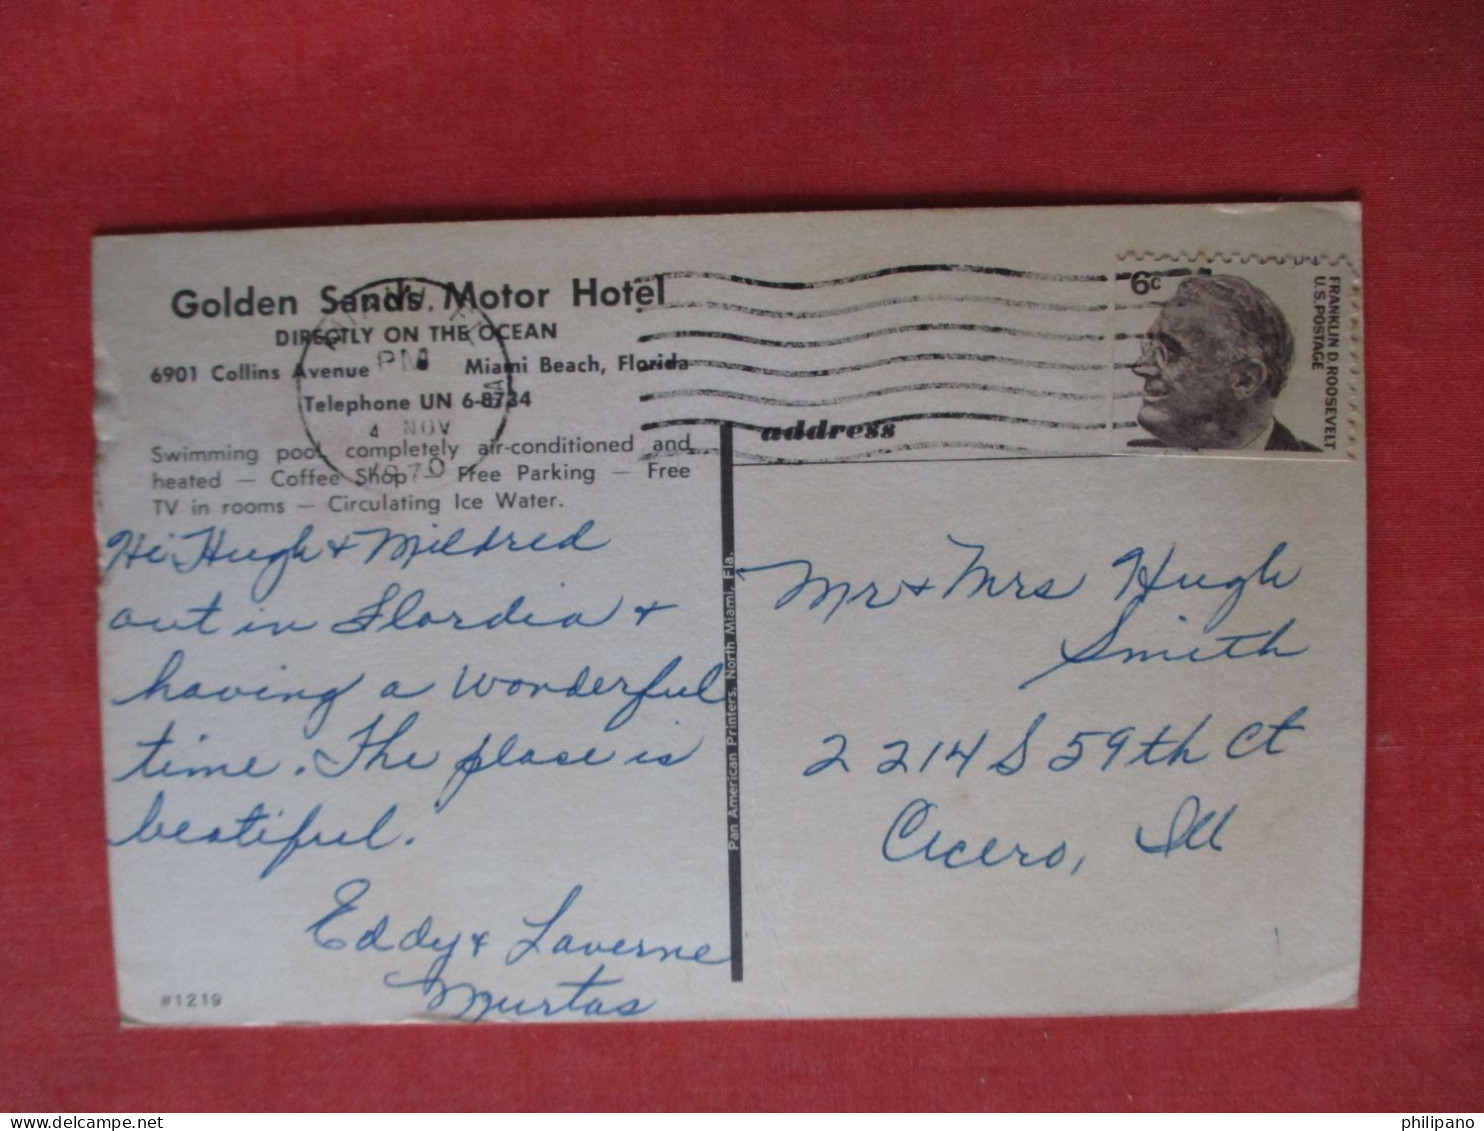 Golden Sands Motor Hotel
DIRECTLY ON THE OCEAN
6901 Collins Avenue Miami Beach, Florida
Telephone UN 6-8734
Swimming pool completely air-conditioned and
heated — Coffee Shop — Free Parking — Free
TV in rooms — Circulating Ice Water.
PM
4 NOV
1970
6c
FRANKLIN D. ROOSEVELT
U.S. POSTAGE
address
Hi Hugh & Mildred
out in Flordia &
having a wonderful
time. The place is
beatiful.
Eddy & Laverne
Murtas
#1219
Pan American Printers, North Miami, Fla.
Mr & Mrs Hugh
Smith
2214 S 59th Ct
Cicero, Ill
philipano